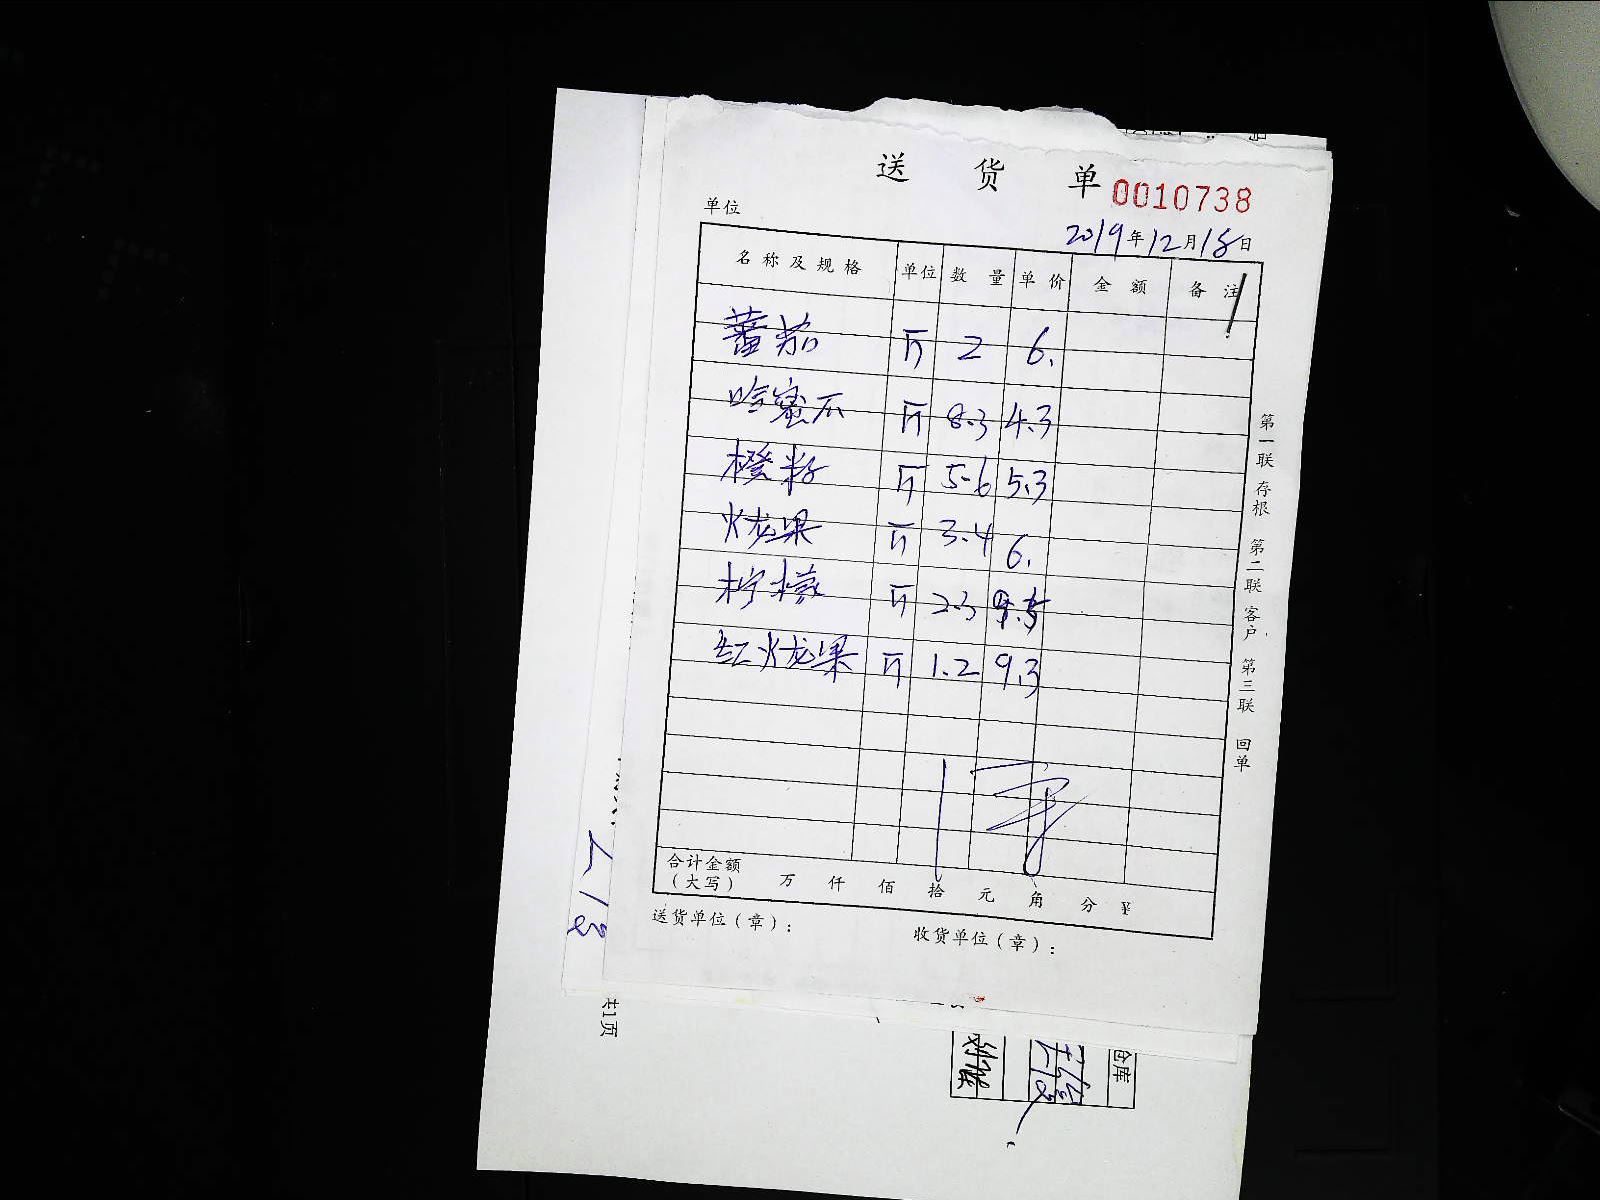 送 货 单 0010738
单位
2019年12月18日
名称及规格 单位 数量 单价 金额 备注
蕃茄 斤 2 6.
哈蜜瓜 斤 8.3 4.3
橙籽 斤 5.6 5.3
火龙果 斤 3.4 6.
柠檬 斤 2.3
红火龙果 斤 1.2 9.3
合计金额
(大写) 万 仟 佰 拾 元 角 分 ¥
送货单位(章): 收货单位(章):
第一联 存根 第二联 客户 第三联 回单
共1页
仓库